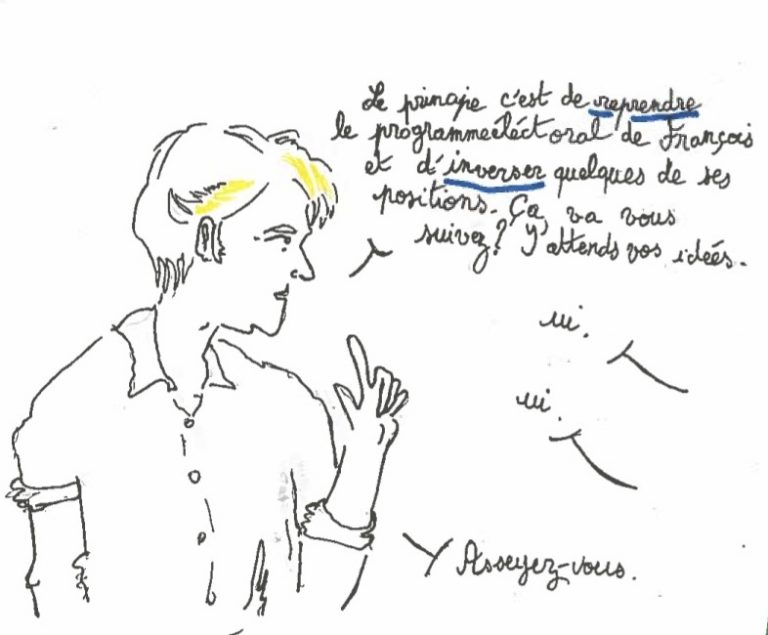 Le principe c'est de reprendre
le programme électoral de François
et d'inverser quelques de ses
positions. Ça va vous
suivez? J'attends vos idées.
ui.
ui.
Asseyez-vous.